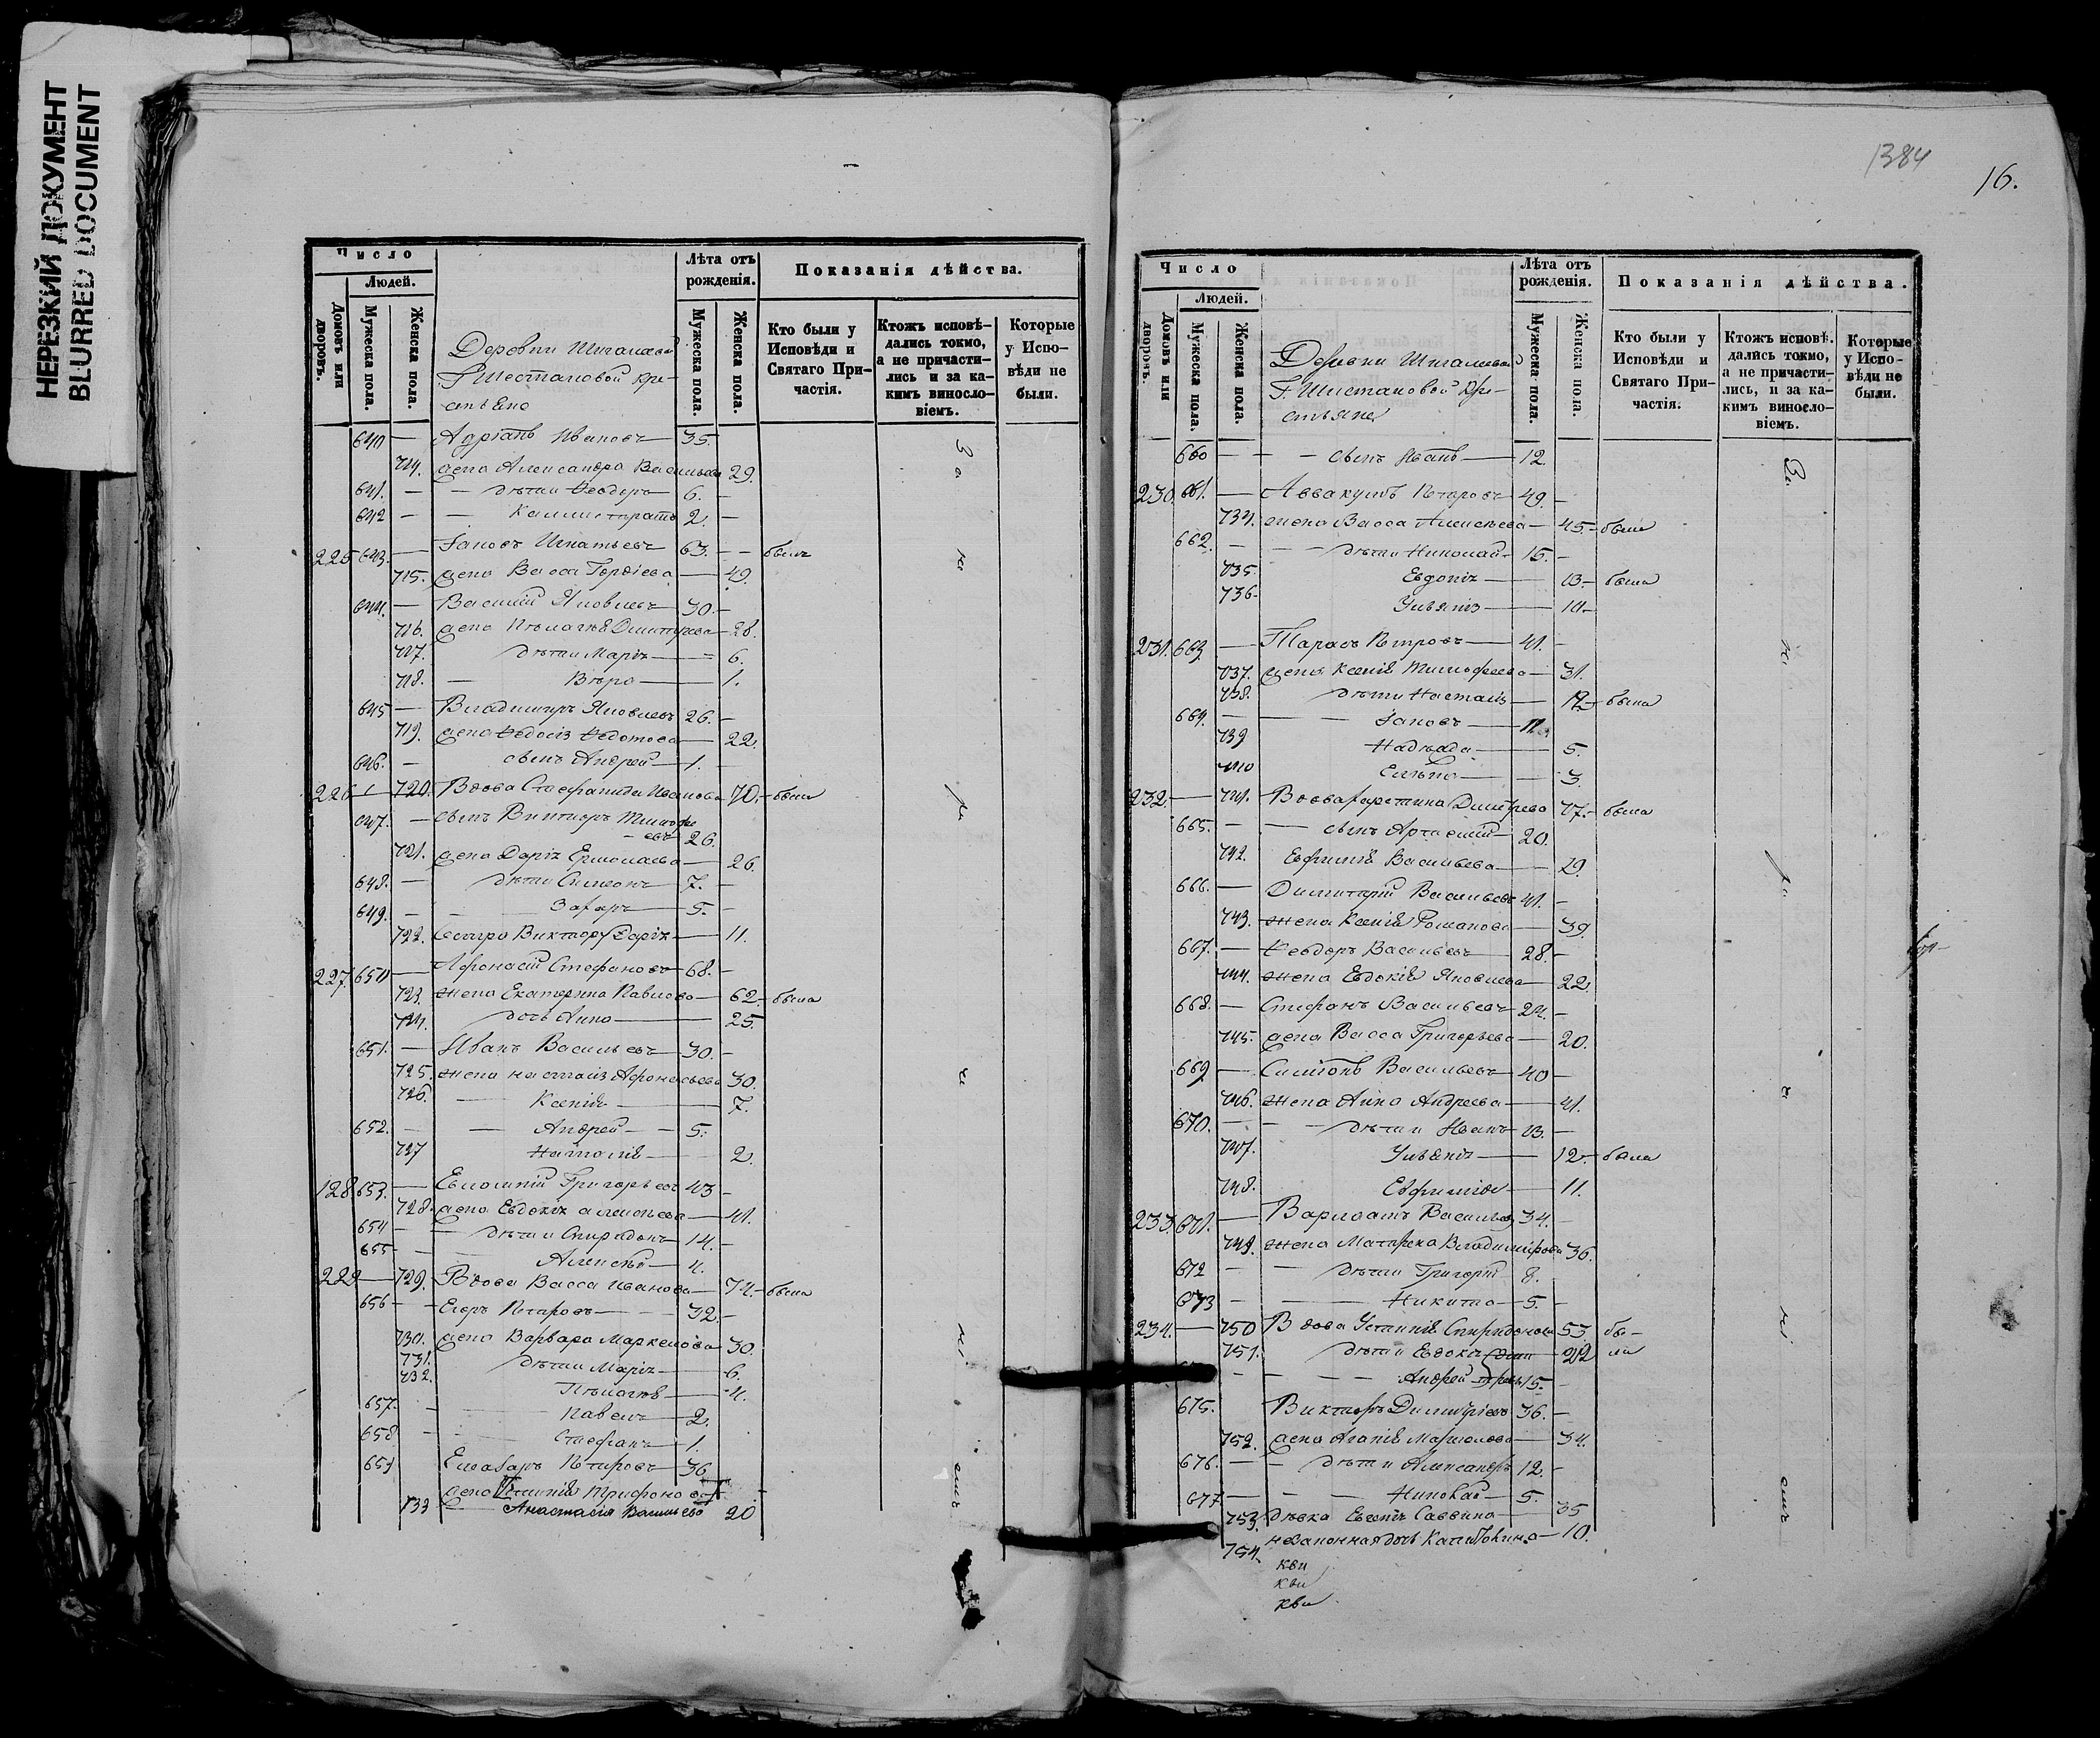 НЕРЕЗКИЙ ДОКУМЕНТ
BLURRED DOCUMENT
Число
Людей.
Домовъ или дворовъ.
Мужеска пола.
Женска пола.
Лѣта отъ рожденія.
Мужеска пола.
Женска пола.
Показанія дѣйства.
Кто были у Исповѣди и Святаго Причастія.
Ктожъ исповѣдались токмо, а не причастились и за какимъ винословіемъ.
Которые у Исповѣди не были.
Деревни
крестьяне
640 — Адріанъ Ивановъ — 35.
714. жена Александра Васильева 29.
641. — — дѣти Ѳеодоръ — 6. —
642 — — Каллистратъ 2. —
225 643. — Іаковъ Игнатьевъ 63. — — былъ
715. жена Васса Гордіева — 49.
644. — Василій Яковлевъ — 30. —
716. жена Пелагія Димитріева — 28.
717. дѣти Марія — 6.
718. — Вѣра — 1.
645 — Владимиръ Яковлевъ 26. —
719. жена Ѳедосія Ѳедотова — 22.
646. — сынъ Андрей — 1. —
226 — 720. Вдова Стефанида Иванова 70. — была
647. — сынъ Викторъ Тимофе
евъ 26.
721. жена Дарія Ермолаева — 26.
648. — дѣти Симеонъ — 7. —
649. — Захаръ — 5. —
722. Сестра Виктору Дарія — 11.
227. 650 — Афонасій Стефановъ — 68. —
723. жена Екатерина Павлова — 62 — была
724. дочь Анна — 25.
651. — Иванъ Васильевъ — 30. —
725. жена Настасія Афонасьева 30.
726. — Ксенія — 7.
652. — — Андрей — — 5.
727 Наталія — 2.
128 653. — Евлампій Григорьевъ 43 —
728. жена Евдокія Алексѣева — 41.
654 — — дѣти Спиридонъ — 14. —
655 — — Алексѣй — 4.
229 — 729. Вдова Васса Иванова — 74. — была
656 — — Егоръ Петровъ — 32. —
730. жена Варвара Маркелова — 30.
731. дѣти Марія — 6.
732. Пелагія — 4.
657. — Павелъ — 2.
658. — Стефанъ — 1.
659 Елеазаръ Петровъ — 36
жена Трифонова
733 Анастасія Васильева 20
За
не
ра
че
ні
емъ
1384
16.
Число
Людей.
Домовъ или дворовъ.
Мужеска пола.
Женска пола.
Лѣта отъ рожденія.
Мужеска пола.
Женска пола.
Показанія дѣйства.
Кто были у Исповѣди и Святаго Причастія.
Ктожъ исповѣдались токмо, а не причастились, и за какимъ винословіемъ.
Которые у Исповѣди не были.
Деревни
крестьяне
660 — — — сынъ Иванъ — 12.
230. 661. — Аввакумъ Петровъ 49. —
734. жена Васса Алексѣева — 45 — была
662. — — — дѣти Николай — 15. —
735. Евдокія — 13 — была
736. Ульянія — 10 —
231. 663. — Тарасъ Петровъ — 41. —
737. жена Ксенія Тимофеева — 31.
738. дѣти Настасія — 12 — была
664. — — — Іаковъ —
739 Надежда — 5.
740 Елена — 3.
232. — 741. Вдова Димитріева 77. — была
665. — — сынъ 20.
742. Евфимія Васильева — 19.
666. — Димитрій Васильевъ 41. —
743. жена Ксенія Романова — 39.
667. — Ѳеодоръ Васильевъ — 28. —
744. жена Евдокія Яковлева — 22.
668. — Стефанъ Васильевъ — 24. —
745. жена Васса Григорьева — 20.
669 — Симеонъ Васильевъ — 40 —
746. жена Анна Андреева — 41.
670. — — — дѣти Иванъ — 13. —
747. Ульянія — 12 — была
748. Евфимія — 11.
233. 671. — Варлаамъ Васильевъ 34. —
749. жена Матрена Владимірова 36.
672 — — дѣти Григорій 8.
673 — — Никита — 5. —
234. — 750 Вдова Устинія Спиридонова 53. бы—
751. дѣти Евдокія 22 ли
Андрей 15. —
675. Викторъ Димитріевъ 36. —
752. жена Агапія — 34.
676. — — дѣти Александръ 12. —
677 — — — Николай — 5. —
753. дѣвка Евгенія Саввина — 35
754. незаконная дочь Капитолина — 10.
кви
кви
кви
За
не
ра
че
ні
емъ